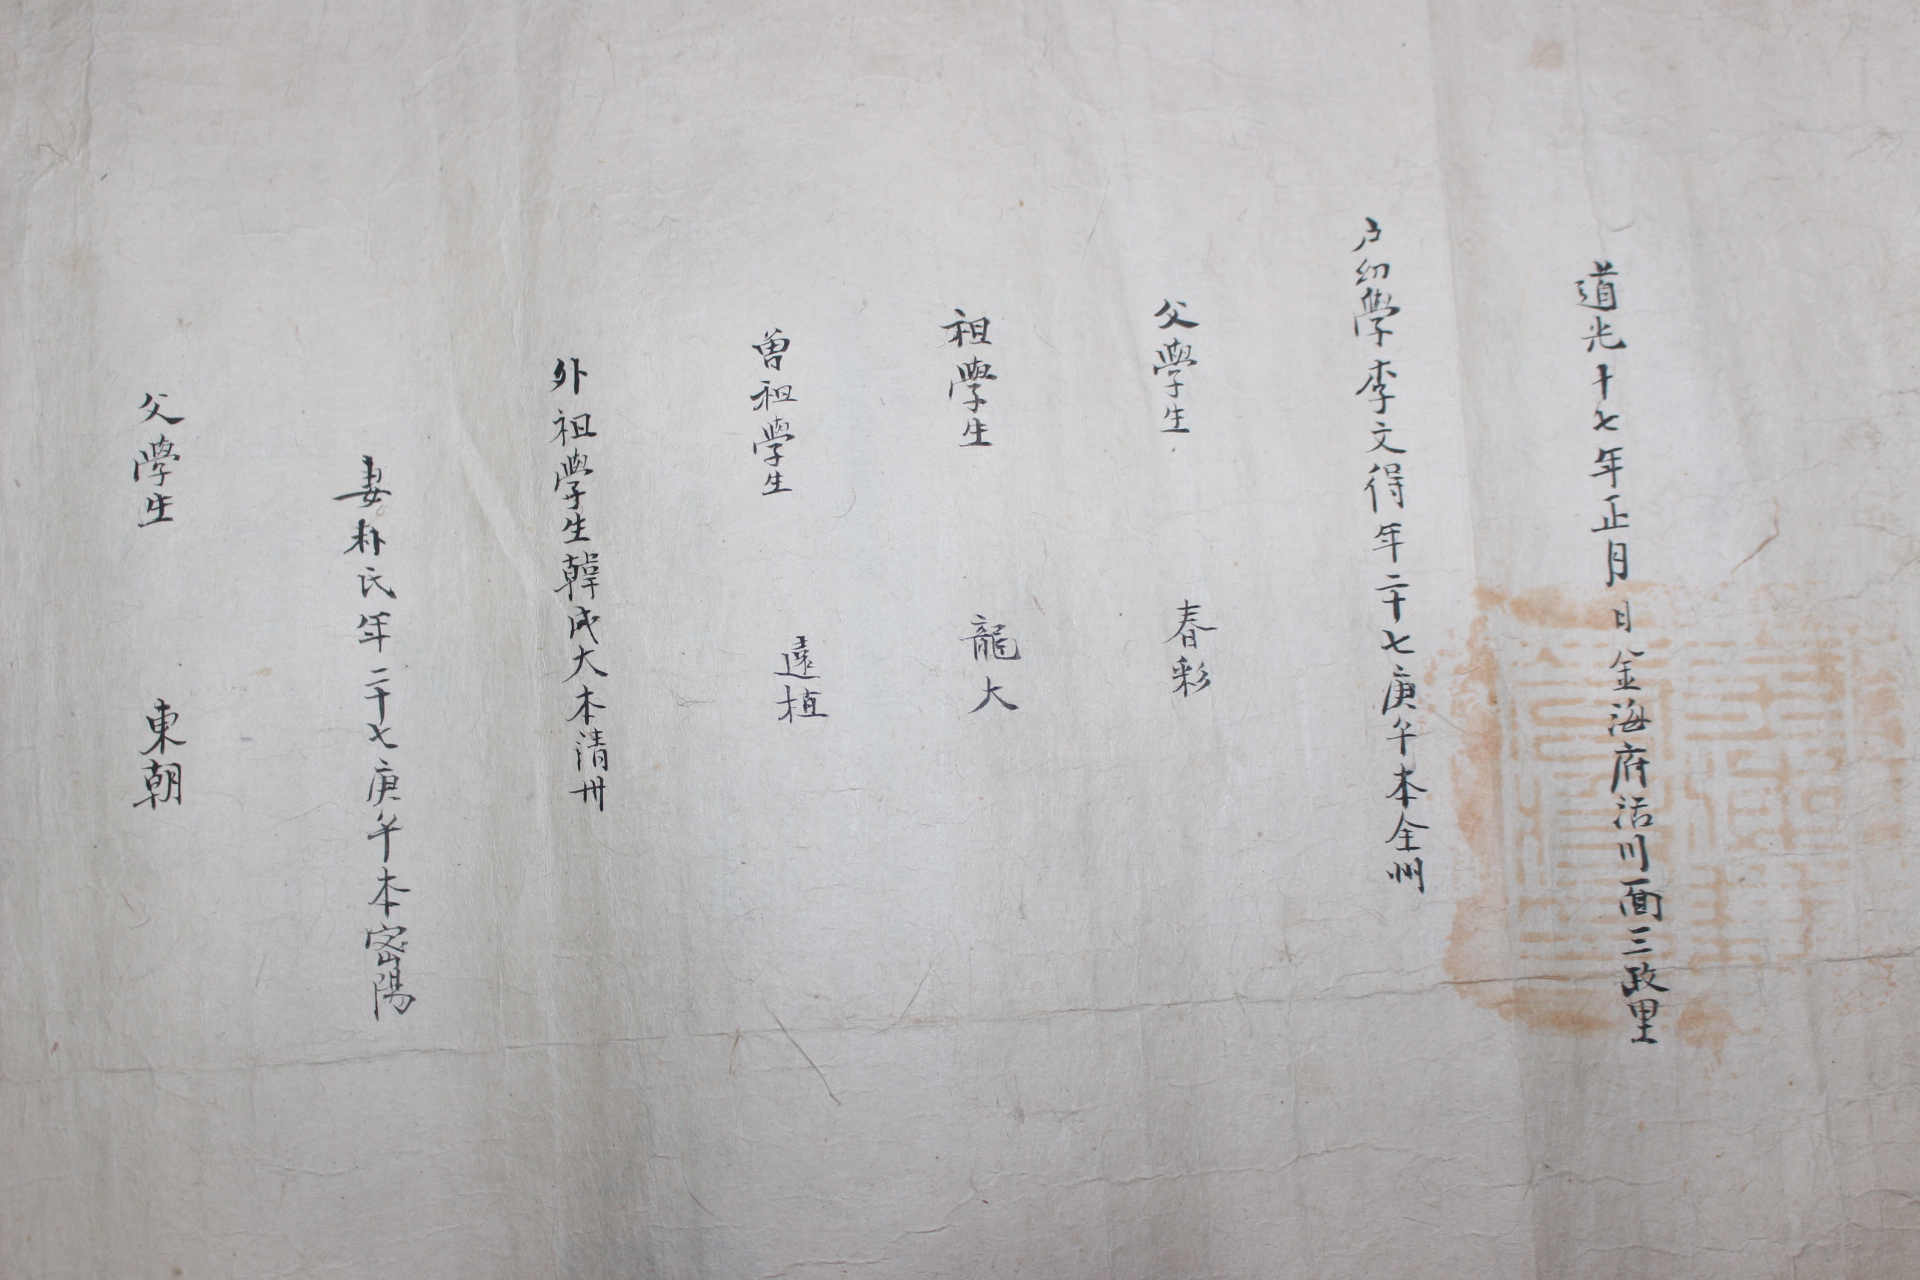 道光十七年正月 日金海府活川面三政里
戶幼學李文得年二十七庚午本全州
父學生 春彩
祖學生 龍大
曽祖學生 遠植
外祖學生韓成大本清州
妻朴氏年二十七庚午本密陽
父學生 東朝